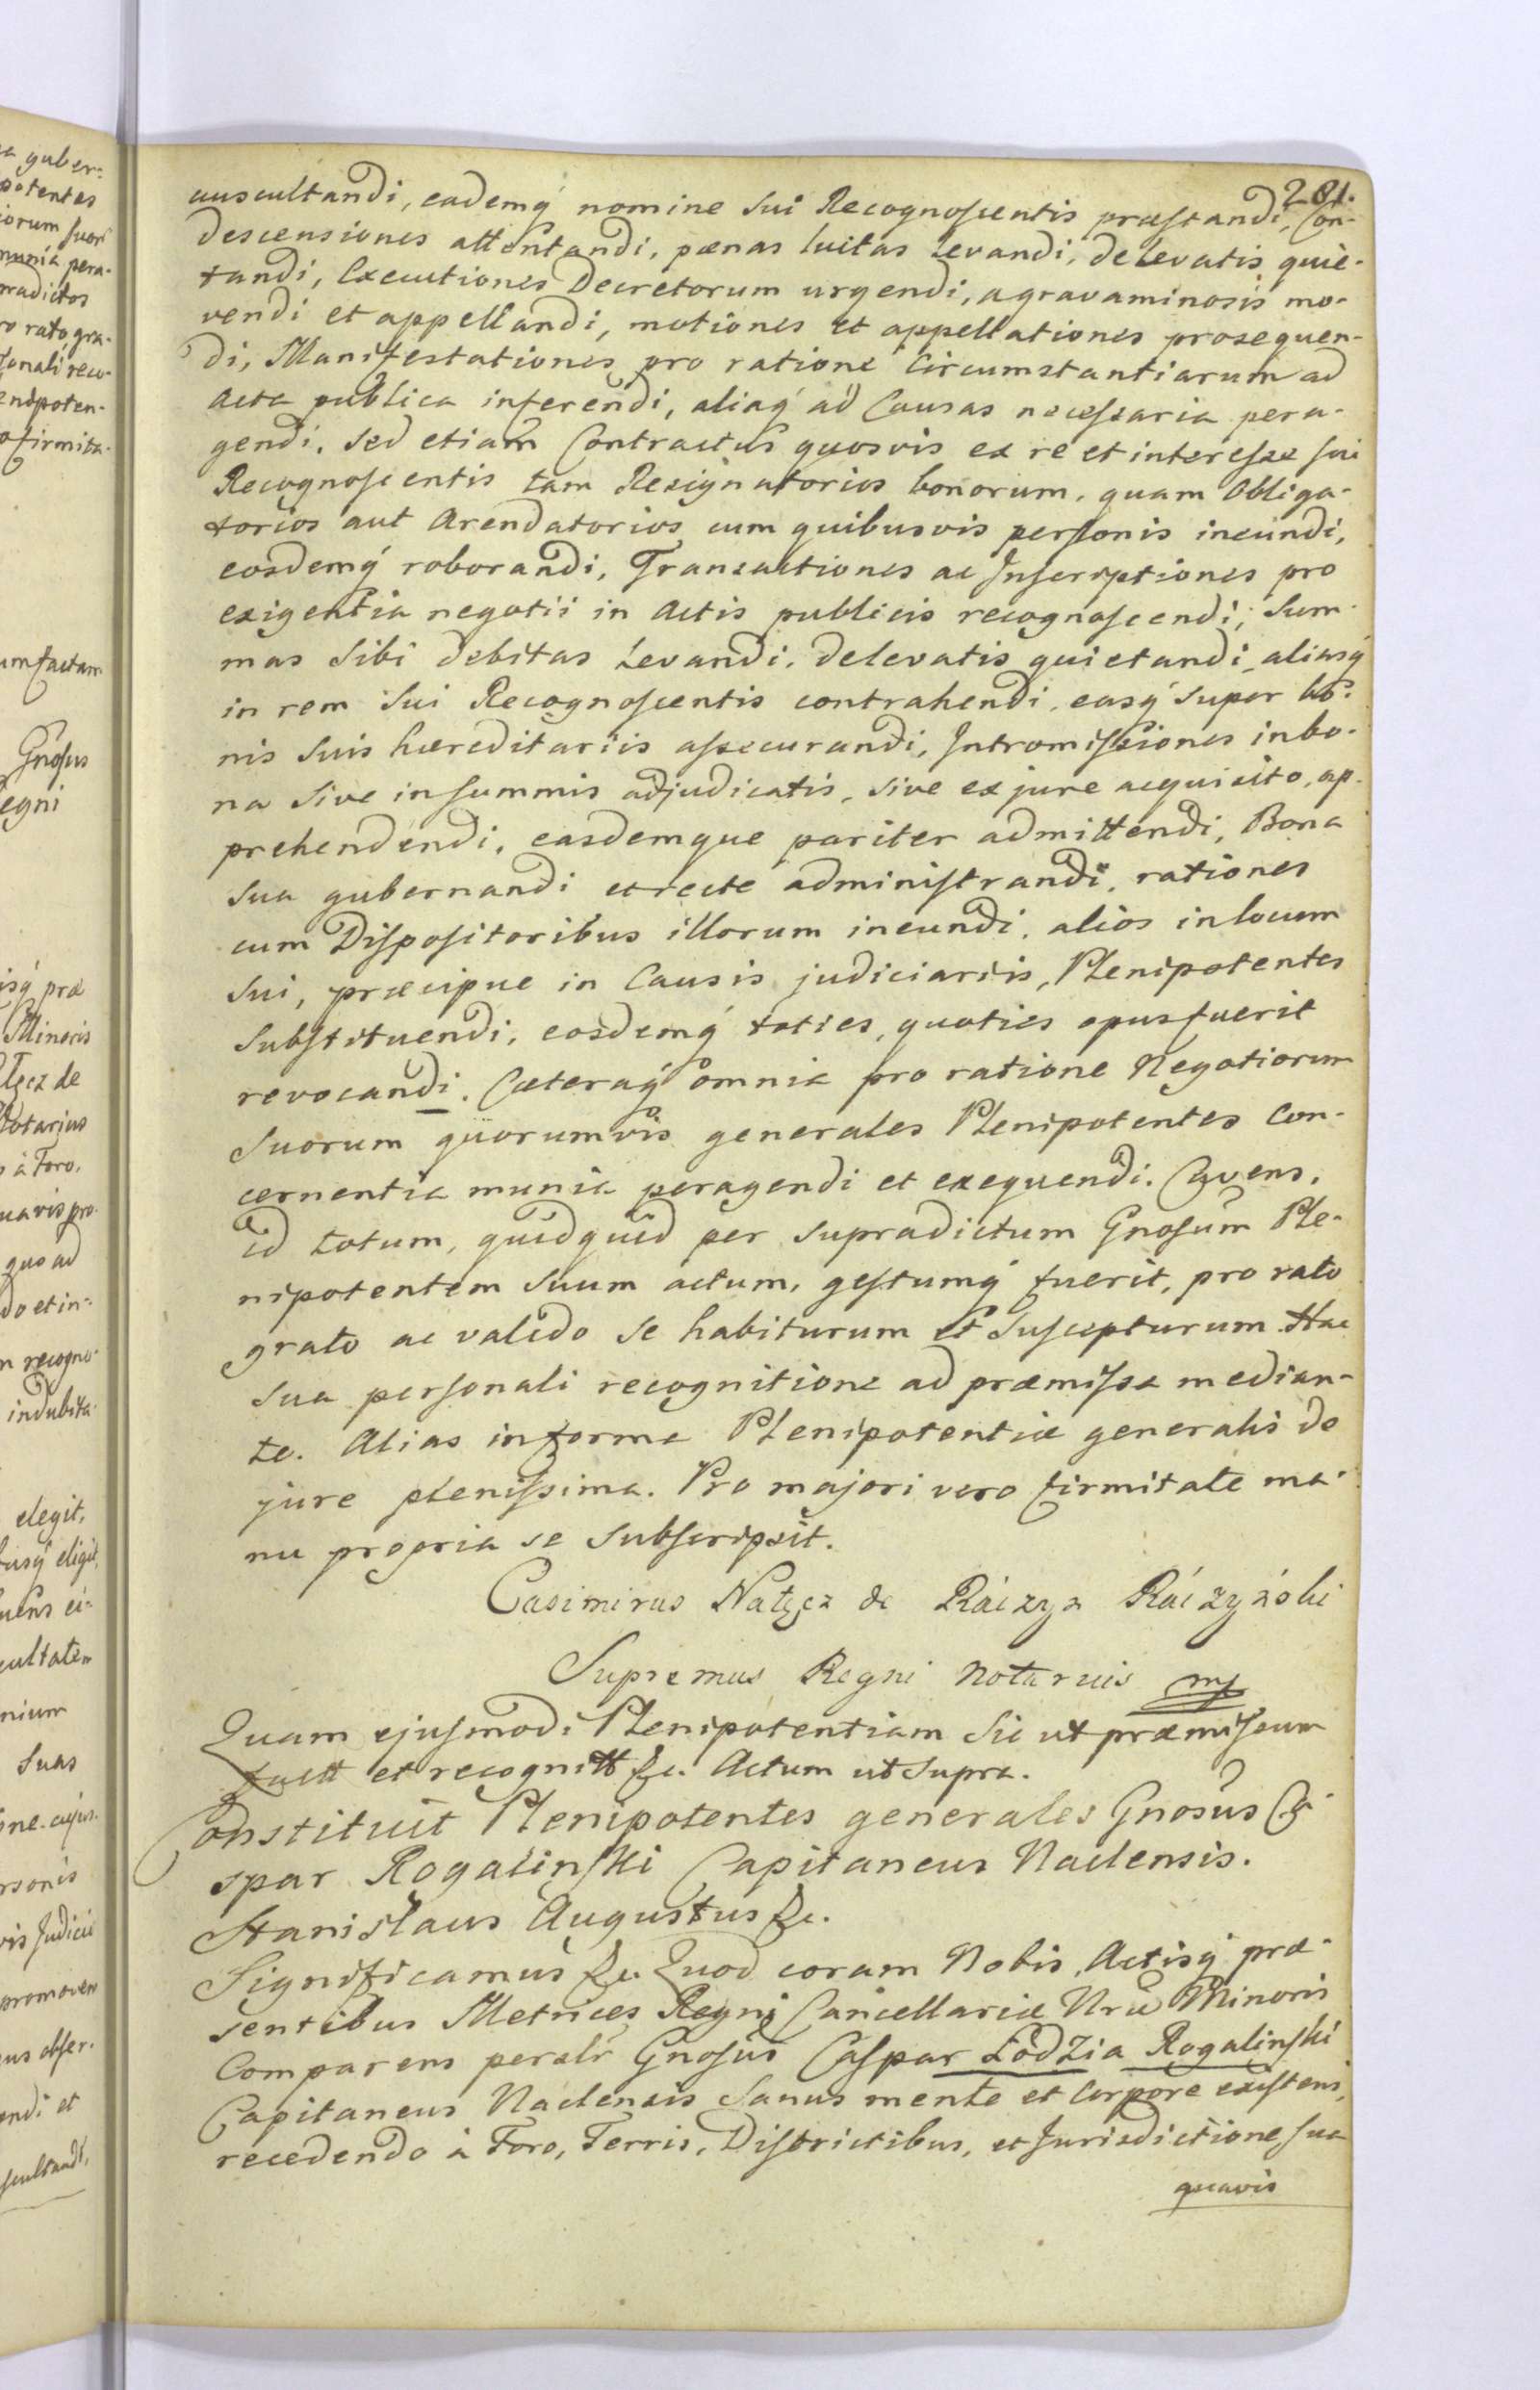 281.
auscultandi, eademq́ nomine sui Recognoscentis præstandi, Con-
descensiones attentandi, pænas luitas Levandi, de Levatis quie-
tandi, Executiones Decretorum urgendi, agravaminosis mo-
vendi et appellandi, motiones et appellationes prosequen-
di, Manifestationes pro ratione Circumstantiarum ad
Acta publica inferendi, aliaq́ ad Causas necessaria pera-
gendi. Sed etiam Contractus quosvis ex re et interesse sui
Recognoscentis tam Resignatorios bonorum, quam Obliga-
torios aut Arendatorios cum quibusvis personis ineundi,
eosdemq́ roborandi, Transactiones ac Inscriptiones pro
exigentia negotii in Actis publicis recognoscendi, Sum-
mas Sibi debitas Levandi, delevatis quietandi, aliasq́
in rem Sui Recognoscentis contrahendi, easq́ super bo-
nis Suis hæreditariis assecurandi, Intromissiones in bo-
na Sive in summis adjudicatis, sive ex jure acquisito, ap-
prehendendi, easdemque pariter admittendi, Bona
Sua gubernandi et recte administrandi, rationes
cum Dispositoribus illorum ineundi, alios in locum
Sui, præcipue in Causis judiciariis, Plenipotentes
Substituendi, eosdemq́ toties, quoties opus fuerit
revocandi. Cæteraq́ omnia pro ratione Negotiorum
Suorum quorumvis generales Plenipotentes Con-
cernentia munia peragendi et exequendi. Cavens,
id totum, quidquid per supradictum Gnosum Ple-
nipotentem Suum actum, gestumq́ fuerit, pro rato
grato ac valido se habiturum et Suscepturum. Hac
Sua personali recognitione ad præmissa median-
te. Alias in forma Plenipotentiæ generalis de
jure plenissima. Pro majori vero firmitate ma-
nu propria se Subscripsit.
Casimirus Nałęcz de Ráczyn Ráczyński
Supremus Regni Notarius mp
Quam ejusmodi Plenipotentiam Sic ut præmissum
fuitt et recognitt &c. Actum ut Supra.
Constituit Plenipotentes generales Gnosus Ca-
spar Rogalinski Capitaneus Naclensis.
Stanislaus Augustus &c.
Significamus &c. Quod coram Nobis, Actisq́ præ-
sentibus Metrices Regni Cancellariæ Nræ Minoris
Comparens persalr Gnosus Caspar Łodzia Rogalinski
Capitaneus Naclensis Sanus mente et Corpore existens,
recedendo à Foro, Terris, Districtibus, et Jurisdictione sua
quavis